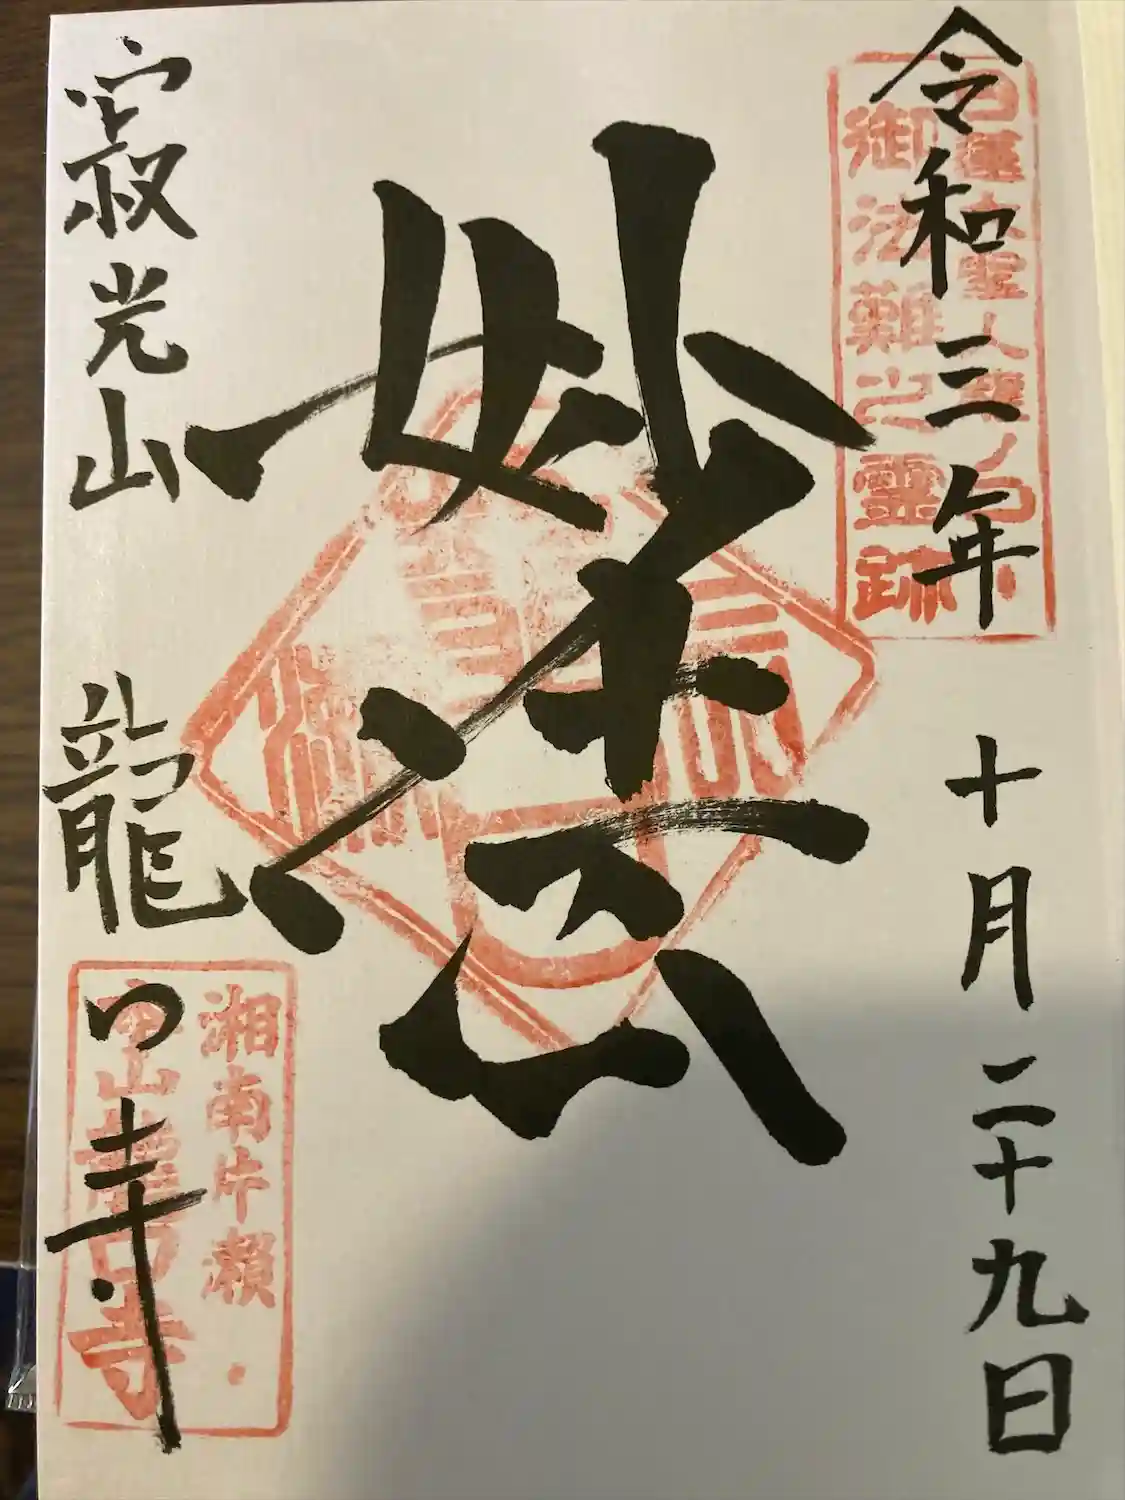 令和三年 十月二十九日
日蓮大聖人龍ノ口
御法難之霊跡
妙法
寂光山 龍口寺
湘南片瀬
寂光山龍口寺